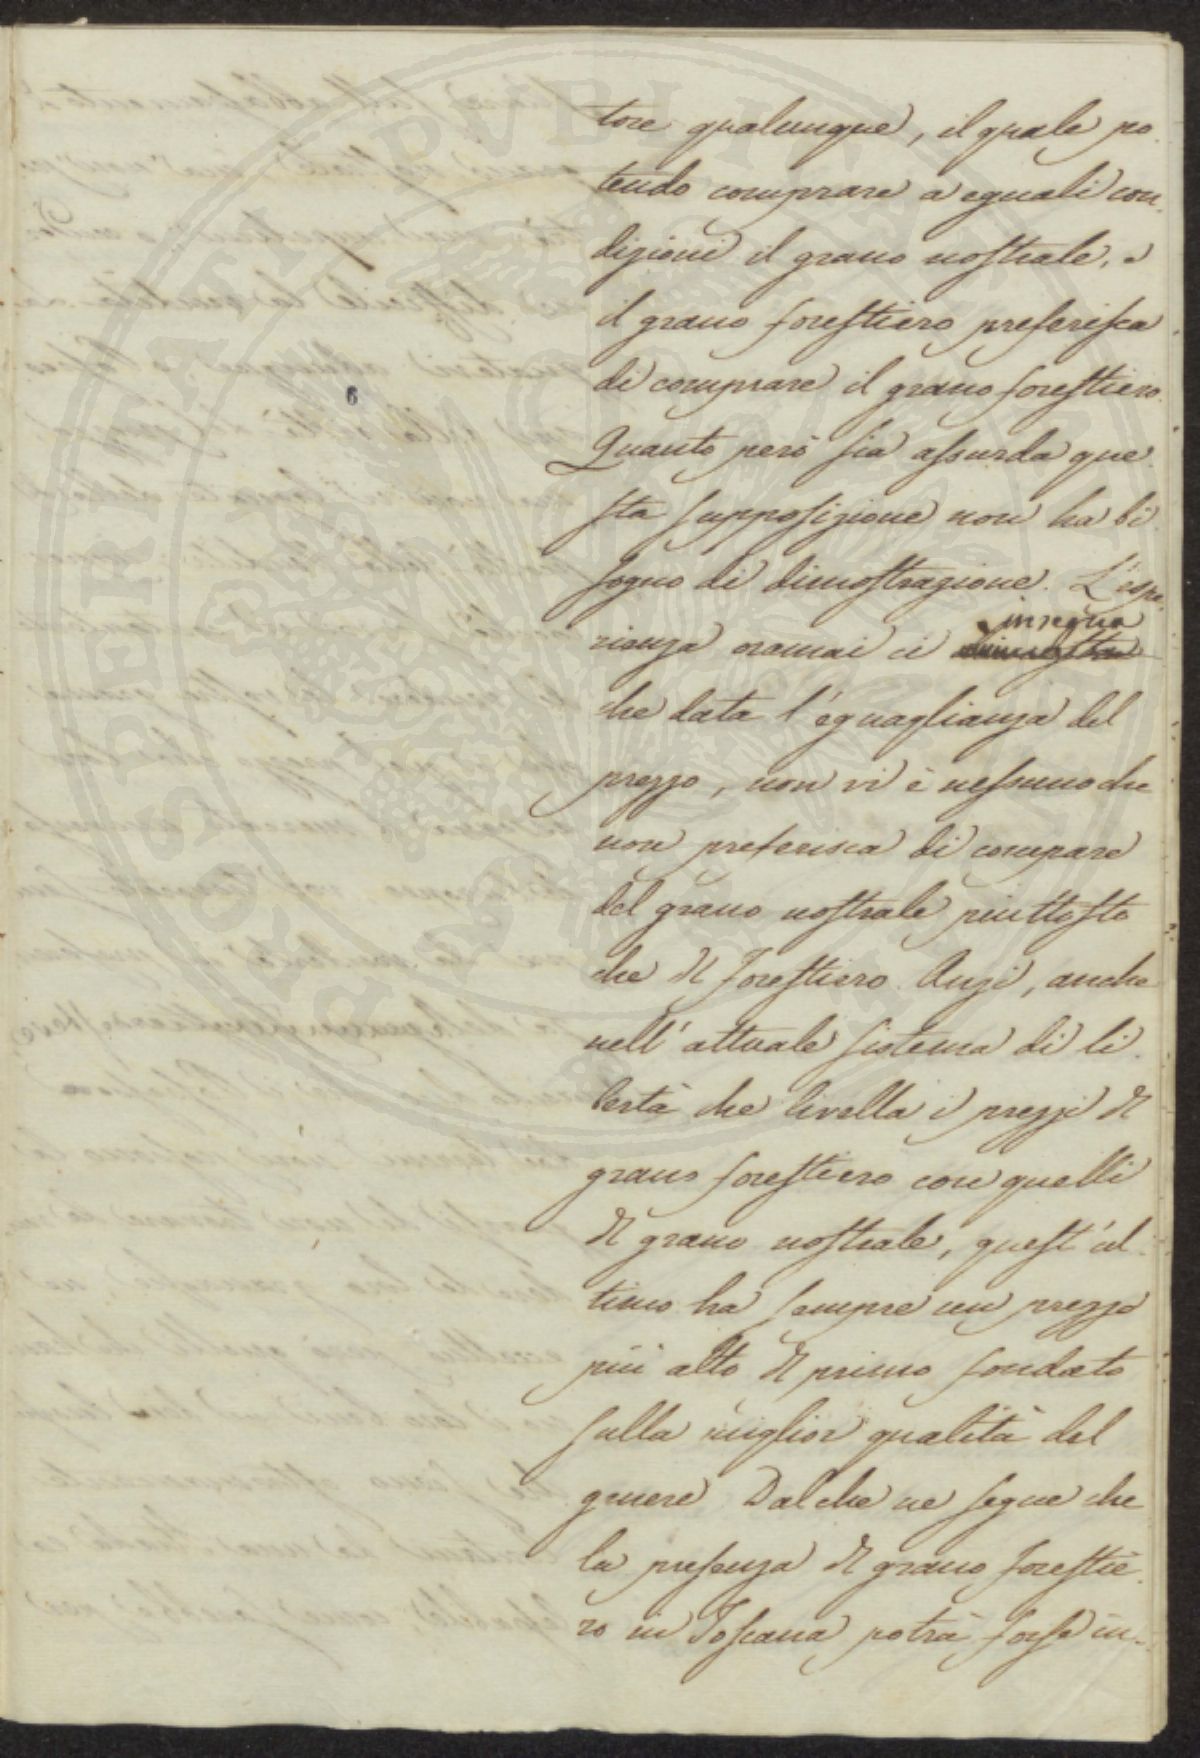 tore qualunque, il quale po-
tendo comprare a eguali con-
dizioni il grano nostrale, e
il grano forestiero preferisca
di comprare il grano forestiero.
Quanto però sia assurda que-
sta supposizione non ha bi-
sogno di dimostrazione. L'espe-
insegna
rienza oramai ci dimostra
che data l'eguaglianza del
prezzo, non vi è nessuno che
non preferisca di comprare
del grano nostrale piuttosto
che del forestiero. Anzi, anche
nell'attuale sistema di li-
bertà che livella i prezzi del
grano forestiero con quelli
del grano nostrale, quest'ul-
timo ha sempre un prezzo
più alto del primo fondato
sulla miglior qualità del
genere. Dal che ne segue che
la presenza del grano forestie-
ro in Toscana potrà forse in-
6
PROSPERITAS PVBLICA